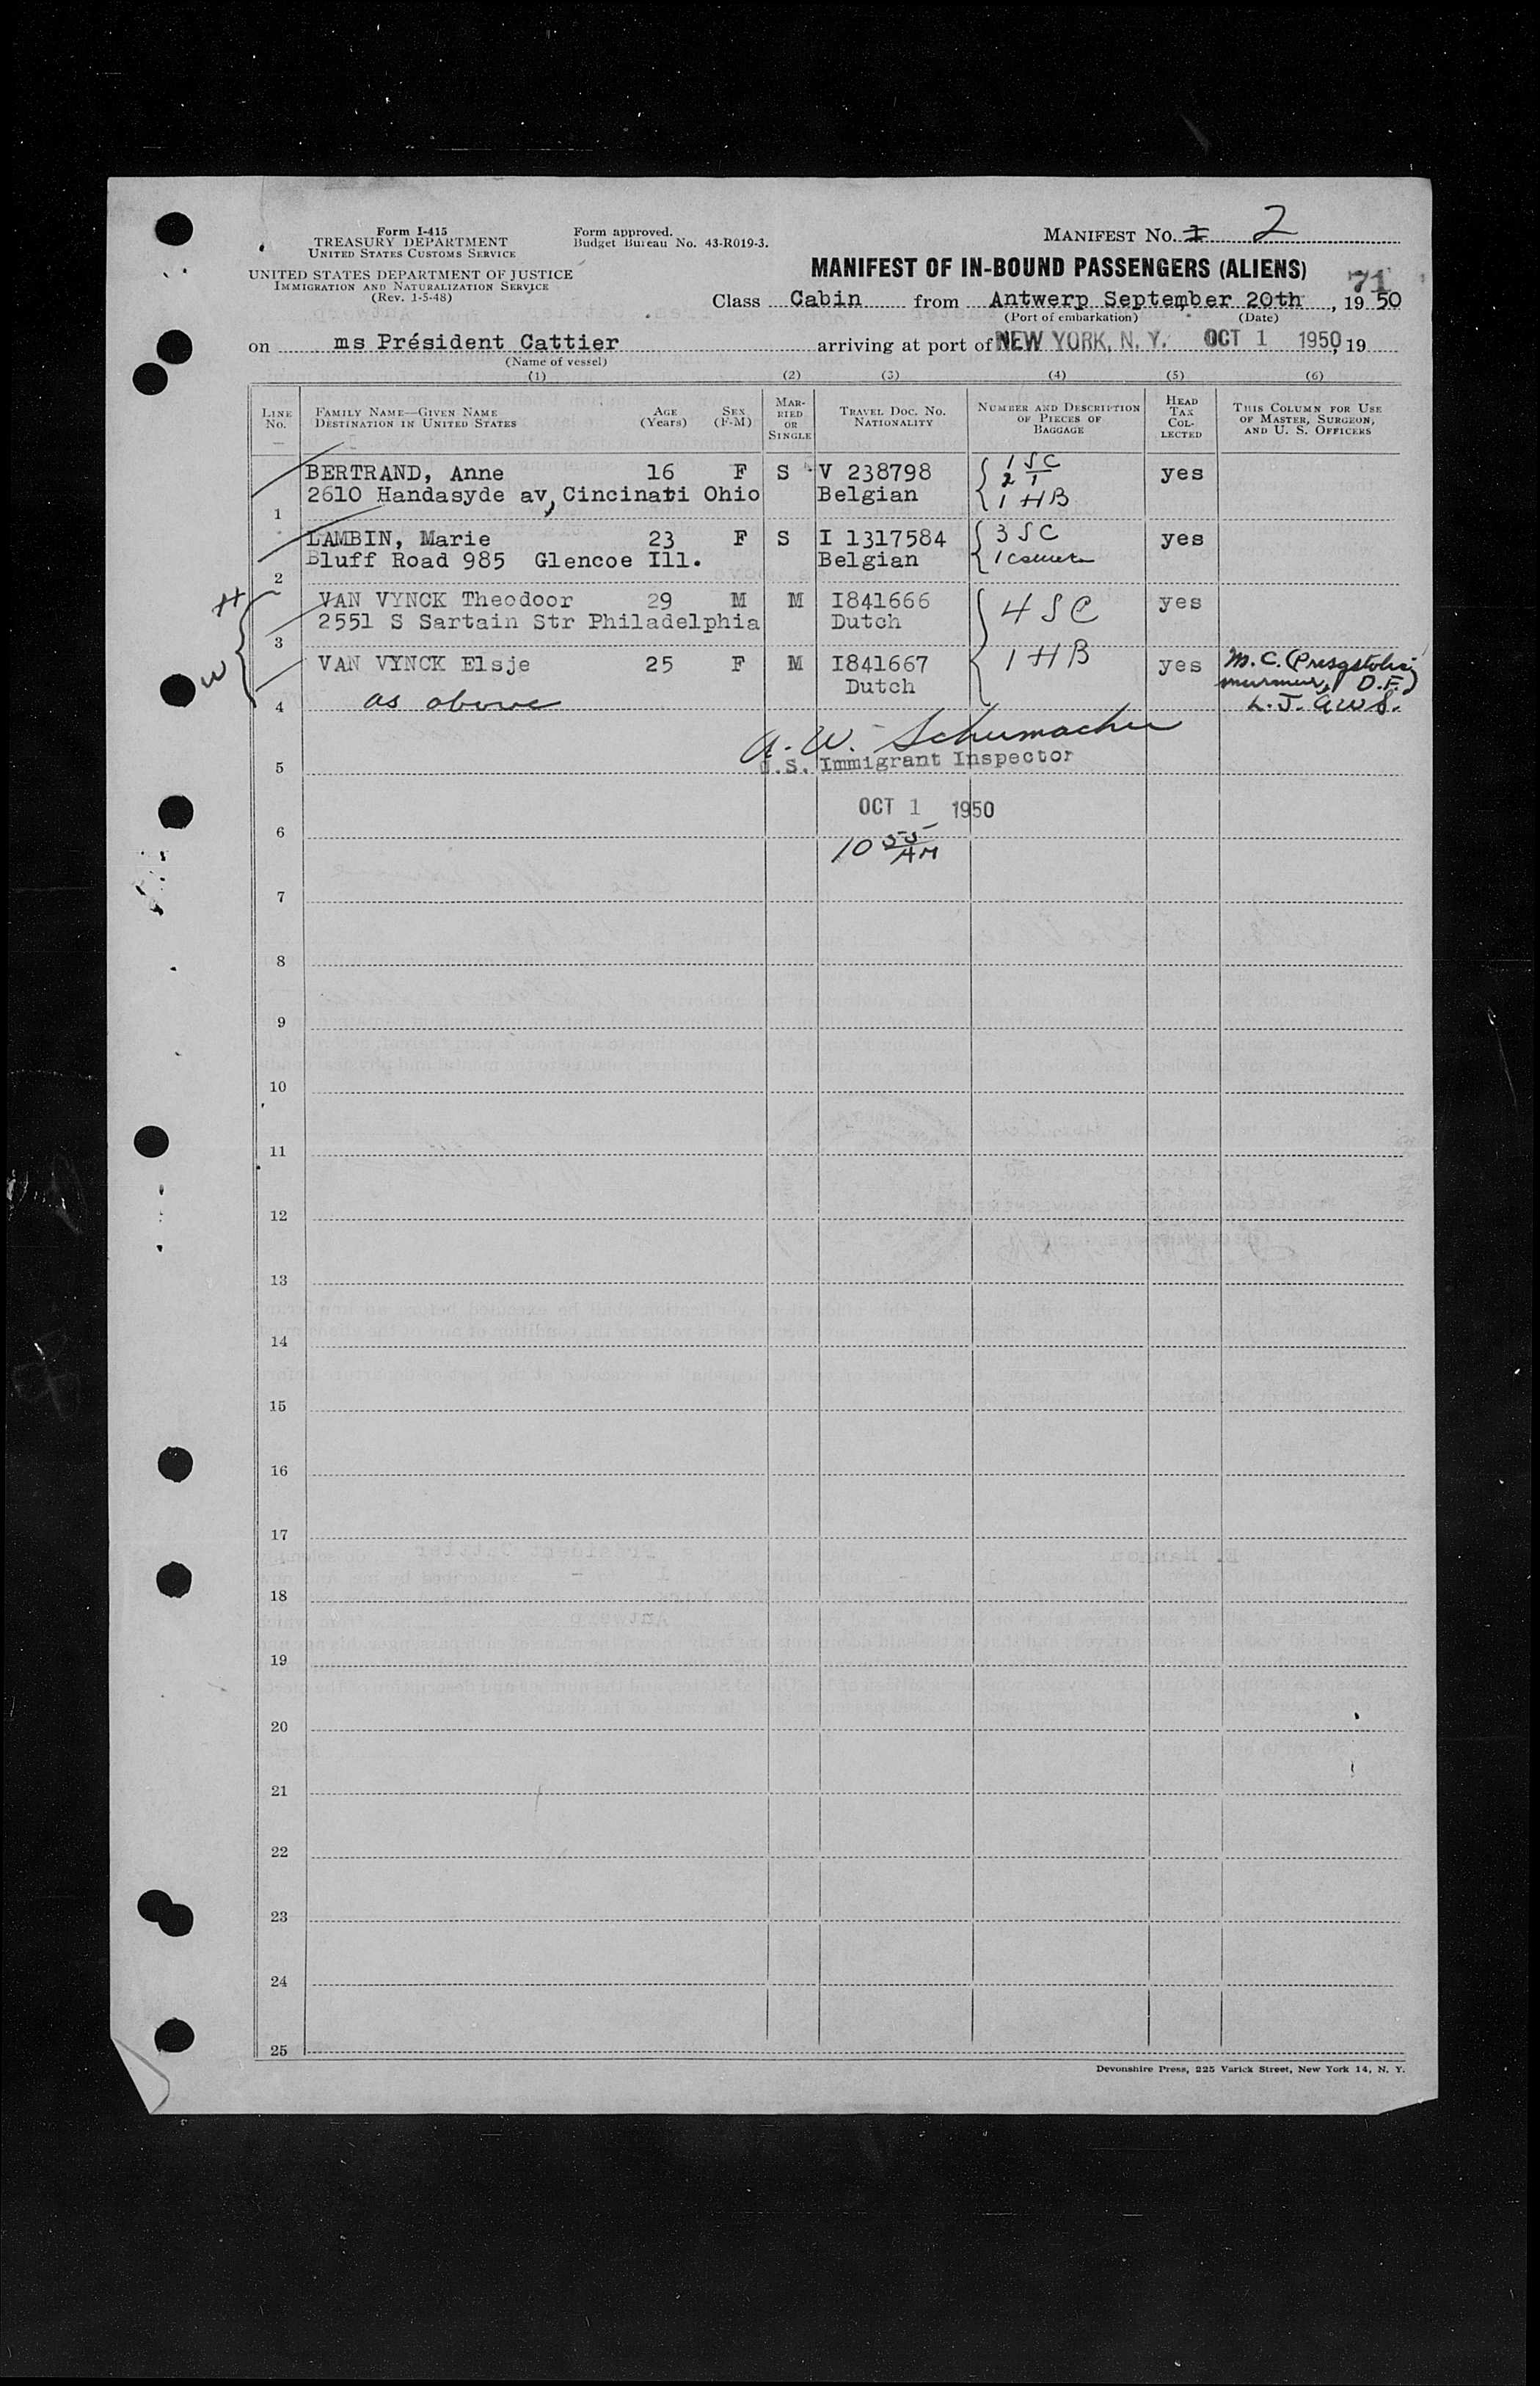 Form I-415
TREASURY DEPARTMENT
UNITED STATES CUSTOMS SERVICE
UNITED STATES DEPARTMENT OF JUSTICE
IMMIGRATION AND NATURALIZATION SERVICE
(Rev. 1-5-48)
Form approved.
Budget Bureau No. 43-R019-3.
MANIFEST NO. 1 2
MANIFEST OF IN-BOUND PASSENGERS (ALIENS)
71
Class Cabin from Antwerp September 20th, 19 50
(Port of embarkation) (Date)
on ms Président Cattier arriving at port of NEW YORK, N. Y. OCT 1 1950, 19
(Name of vessel)
(1) (2) (3) (4) (5) (6)
LINE NO. FAMILY NAME—GIVEN NAME DESTINATION IN UNITED STATES AGE (Years) SEX (F-M) MARRIED OR SINGLE TRAVEL DOC. NO. NATIONALITY NUMBER AND DESCRIPTION OF PIECES OF BAGGAGE HEAD TAX COLLECTED THIS COLUMN FOR USE OF MASTER, SURGEON, AND U. S. OFFICERS
BERTRAND, Anne 16 F S V 238798 1 SC 2 T yes
1 2610 Handasyde av, Cincinati Ohio Belgian 1 HB
LAMBIN, Marie 23 F S I 1317584 3 SC yes
2 Bluff Road 985 Glencoe Ill. Belgian 1 camera
VAN VYNCK Theodoor 29 M M I841666 4 SC yes
3 2551 S Sartain Str Philadelphia Dutch
VAN VYNCK Elsje 25 F M I841667 1 HB yes M. C. murmur, D.F.)
4 as above Dutch L. J. AWS.
A. W. Schumacher
5 U.S. Immigrant Inspector
OCT 1 1950
6
10 55 AM
7
8
9
10
11
12
13
14
15
16
17
18
19
20
21
22
23
24
25
Devonshire Press, 225 Varick Street, New York 14, N. Y.